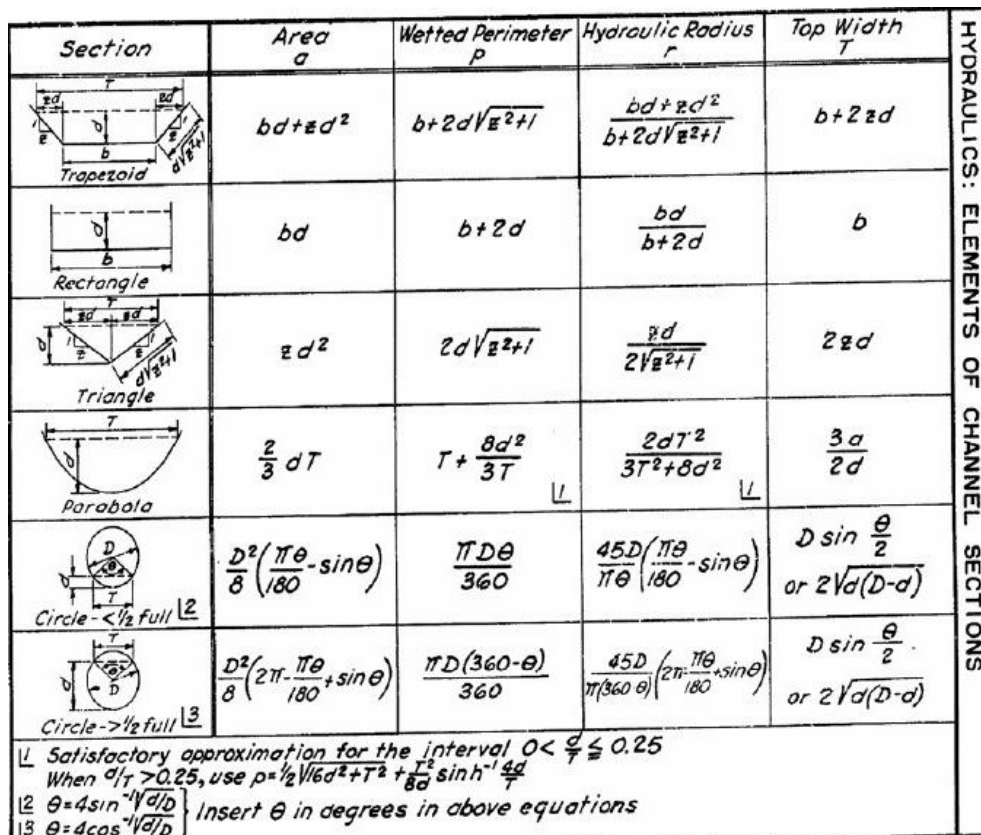 HYDRAULICS: ELEMENTS OF CHANNEL SECTIONS
Section | Area a | Wetted Perimeter p | Hydraulic Radius r | Top Width T
T zd zd d 1 z 1 z b d√z²+1
Trapezoid | bd+zd² | b+2d√z²+1 | bd+zd² / b+2d√z²+1 | b+2zd
d b
Rectangle | bd | b+2d | bd / b+2d | b
T zd zd d 1 z 1 z d√z²+1
Triangle | zd² | 2d√z²+1 | zd / 2√z²+1 | 2zd
T d
Parabola | 2/3 dT | T + 8d²/3T ⌊1 | 2dT² / 3T²+8d² ⌊1 | 3a / 2d
D θ d T
Circle-<1/2 full ⌊2 | D²/8 (πθ/180 - sinθ) | πDθ / 360 | 45D/πθ (πθ/180 - sinθ) | D sin θ/2 or 2√d(D-d)
T θ d D
Circle->1/2 full ⌊3 | D²/8 (2π - πθ/180 + sinθ) | πD(360-θ) / 360 | 45D/π(360-θ) (2π - πθ/180 + sinθ) | D sin θ/2 . or 2√d(D-d)
⌊1 Satisfactory approximation for the interval 0< d/T ≦ 0.25
When d/T >0.25, use p=1/2√16d²+T² + T²/8d sinh⁻¹ 4d/T
⌊2 θ=4sin⁻¹√d/D } Insert θ in degrees in above equations
⌊3 θ=4cos⁻¹√d/D